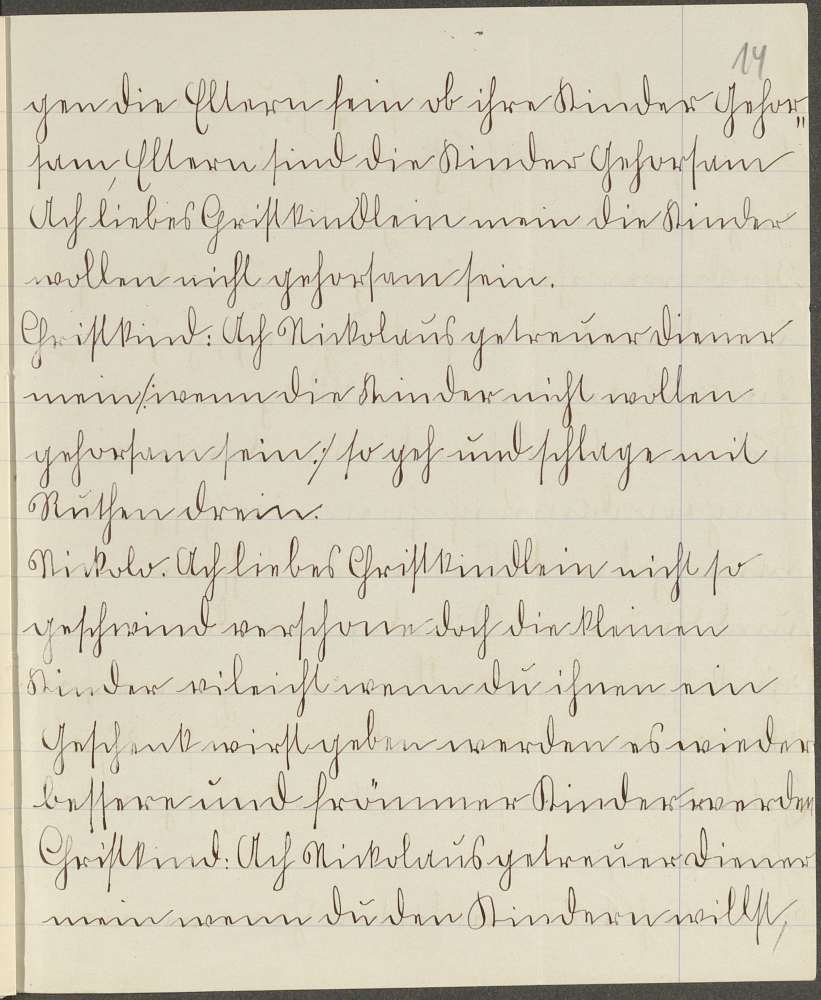 14
gen die Eltern fein ob ihre Kinder Gehor„
sam, Eltern sind die Kinder Gehorsam
Ach liebes Gristkindlein mein die Kinder
wollen nicht gehorsam sein.
Christkind: Ach Nickolaus getreuer Diener
mein /: wenn die Kinder nicht wollen
gehorsam sein :/ so geh und schlage mit
Ruthen drein.
Nickolo. Ach liebes Christkindlein nicht so
geschwind verschone doch die kleinen
Kinder vileicht wenn du ihnen ein
Geschenk wirst geben werden es wieder
bessere und frömmer Kinder werden
Christkind: Ach Nickolaus getreuer Diener
mein wenn du den Kindern willst,